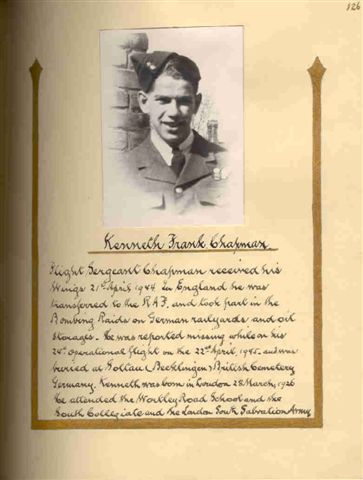 126
Kenneth Frank Chapman
Flight Sergeant Chapman received his
Wings 21st April, 1944. In England he was
transferred to the R.A.F. and took part in the
Bombing Raids on German railyards and oil
storages. He was reported missing while on his
24th operational flight on the 22nd April, 1945. and was
buried at Soltau (Becklingen) British Cemetery
Germany. Kenneth was born in London 28 March, 1926
He attended the Wortley Road School and the
South Collegiate and the London South Salvation Army